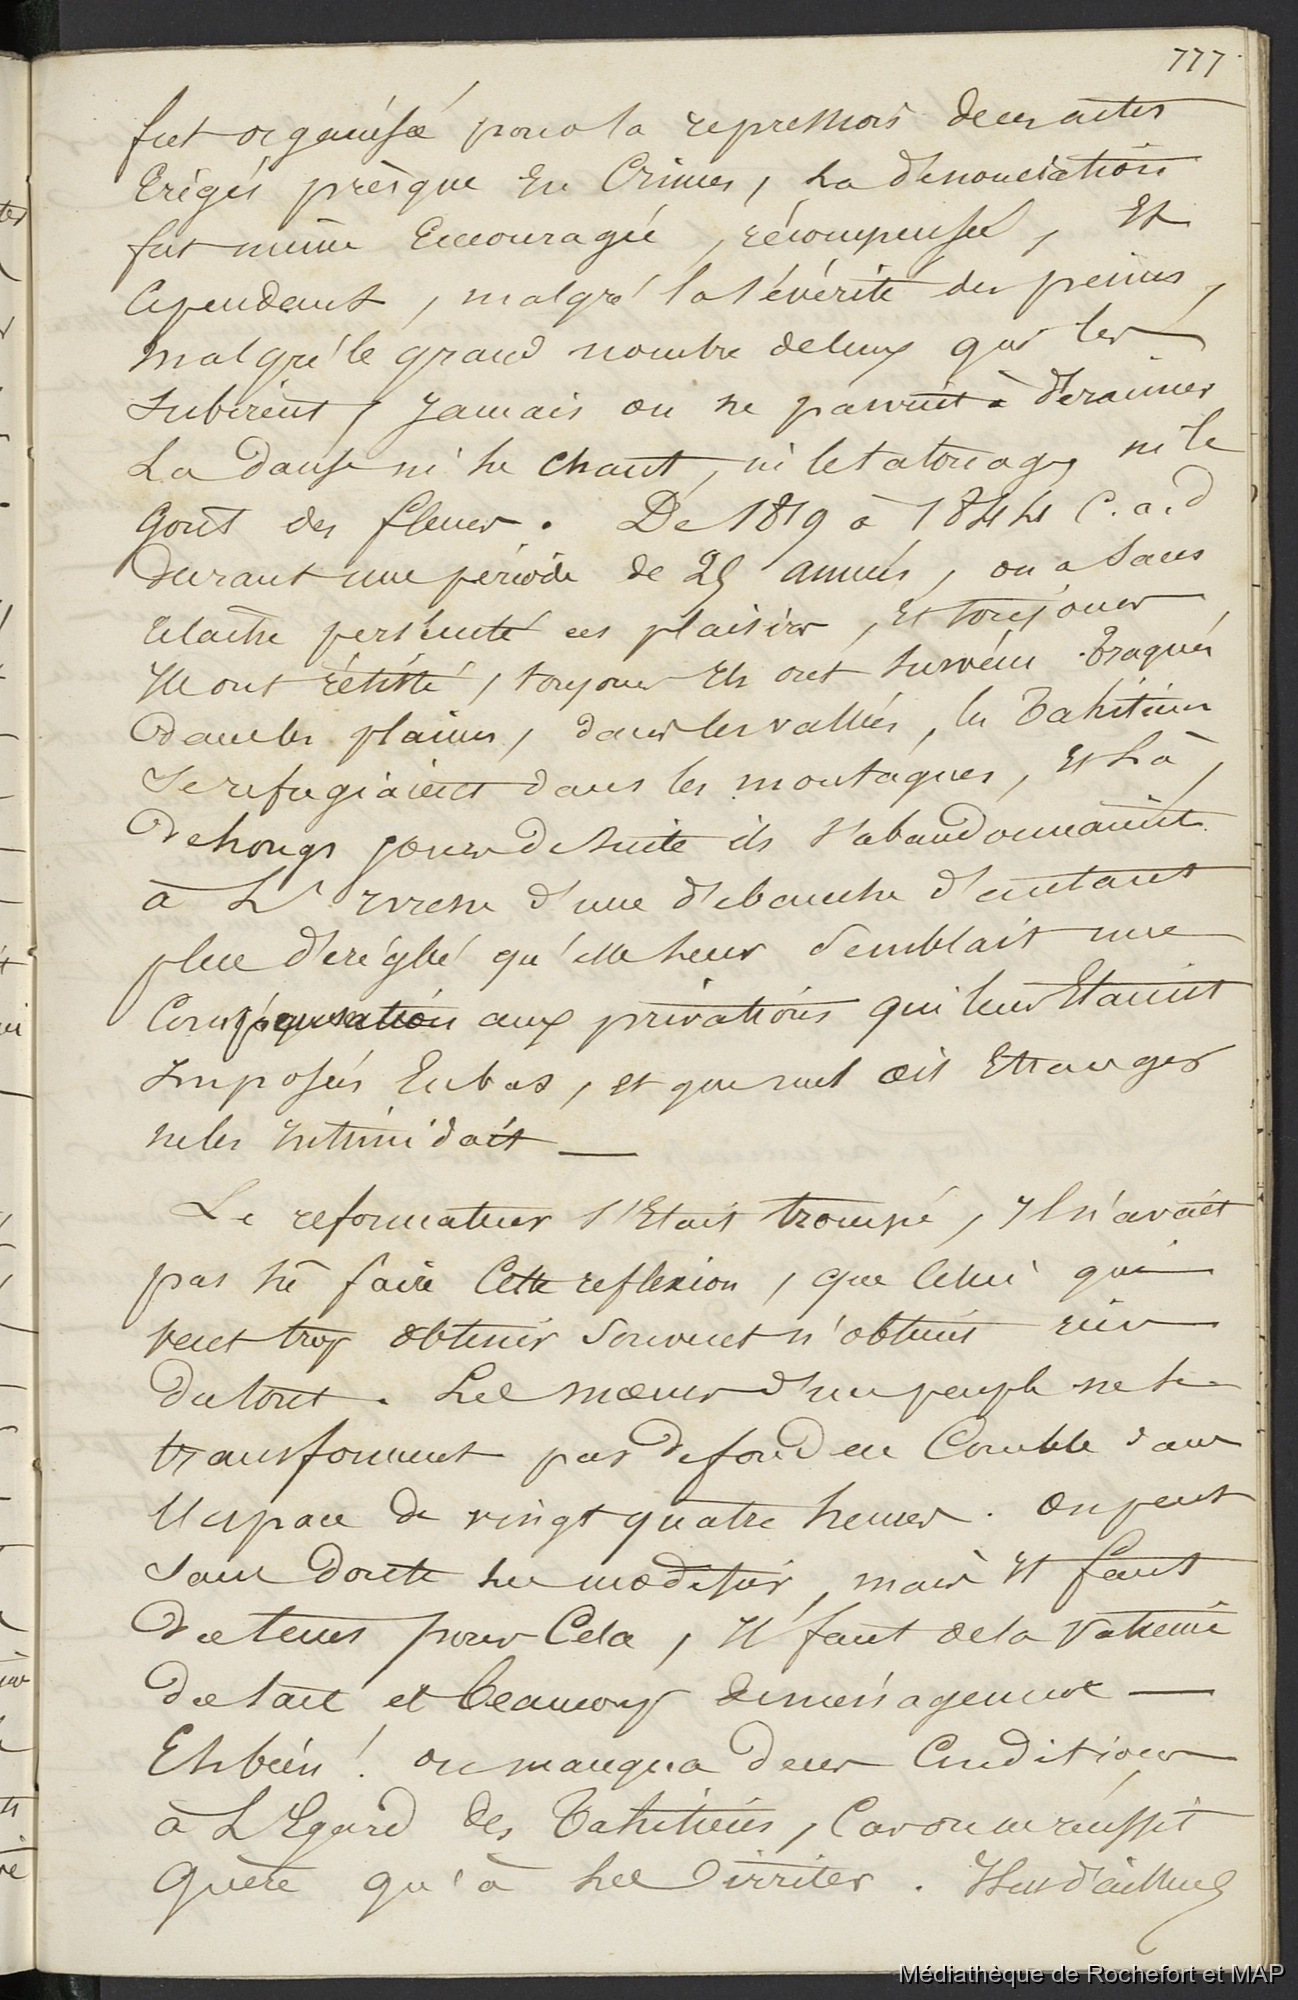 777
fut organisé pour la repression de ces actes
Erigés prèsque En Crimes, La dénonciation
fut même Encouragée, récompensée, Et
Cependant, malgré la sévérité des peines,
malgré le grand nombre de ceux qui les
subirent, jamais on ne parvint à déraciner
La danse ni le chant, ni le tatouage, ni le
Goût des fleurs. De 1819 à 1844 C.a.d
durant une période de 25 années, on a sans
relache persécuté ces plaisirs, et toujours
Ils ont résisté, toujours Ils ont survécu. Traqués
dans les plaines, dans les vallées, les Tahitiens
se refugiaient dans les montagnes, et Là,
de longs jours de suite ils s'abandonnaient
à L'ivresse d'une débauche d'autant
plus déréglée qu'elle leur semblait une
Compensation aux privations qui leur Etaient
Imposées En bas, et que nul œil Etranger
ne les Intimidait —
Le reformateur s'Etait trompé, Il n'avait
pas sû faire Cette reflexion, que Celui qui
veut trop obtenir souvent n'obtient rien
du tout. Les mœurs d'un peuple ne se
transforment pas de fond en Comble dans
l'Espace de vingt quatre heures. On peut
sans doute les modifier, mais Il faut
du tems pour Cela, Il faut de la Patience
du tact et beaucoup de ménagement —
Eh bien! on manqua de ces Conditions
à L'Egard des Tahitiens, Car on ne réussit
Guère qu'à les irriter. Ils d'ailleurs
Médiathèque de Rochefort et MAP